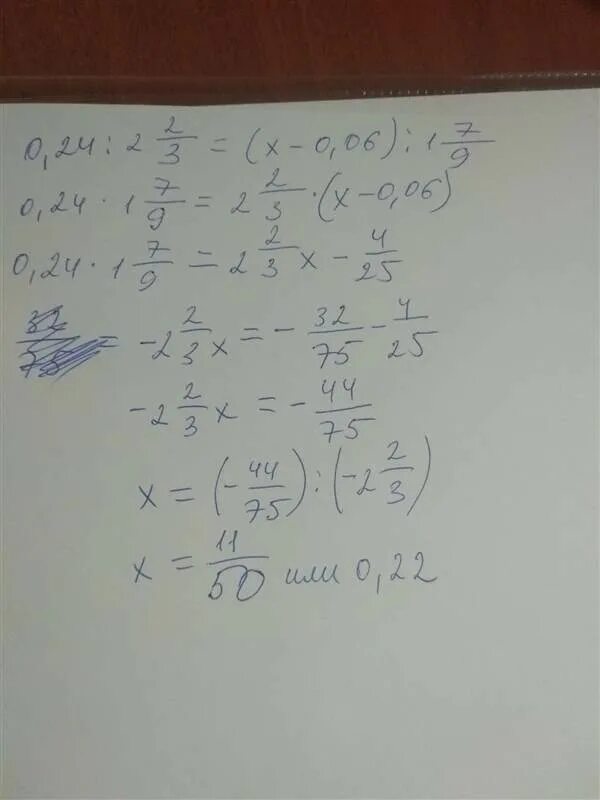 0,24 : 2 2/3 = (x - 0,06) : 1 7/9
0,24 · 1 7/9 = 2 2/3 · (x - 0,06)
0,24 · 1 7/9 = 2 2/3 x - 4/25
= -2 2/3 x = - 32/75 - 4/25
-2 2/3 x = - 44/75
x = (- 44/75) : (-2 2/3)
x = 11/50 или 0,22